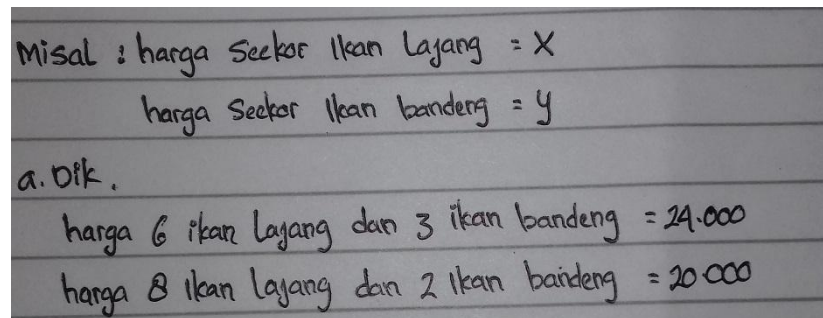 Misal : harga Seekor Ikan Layang = X
harga Seekor Ikan bandeng = y
a. Dik.
harga 6 ikan Layang dan 3 ikan bandeng = 24.000
harga 8 Ikan Layang dan 2 Ikan bandeng = 20.000